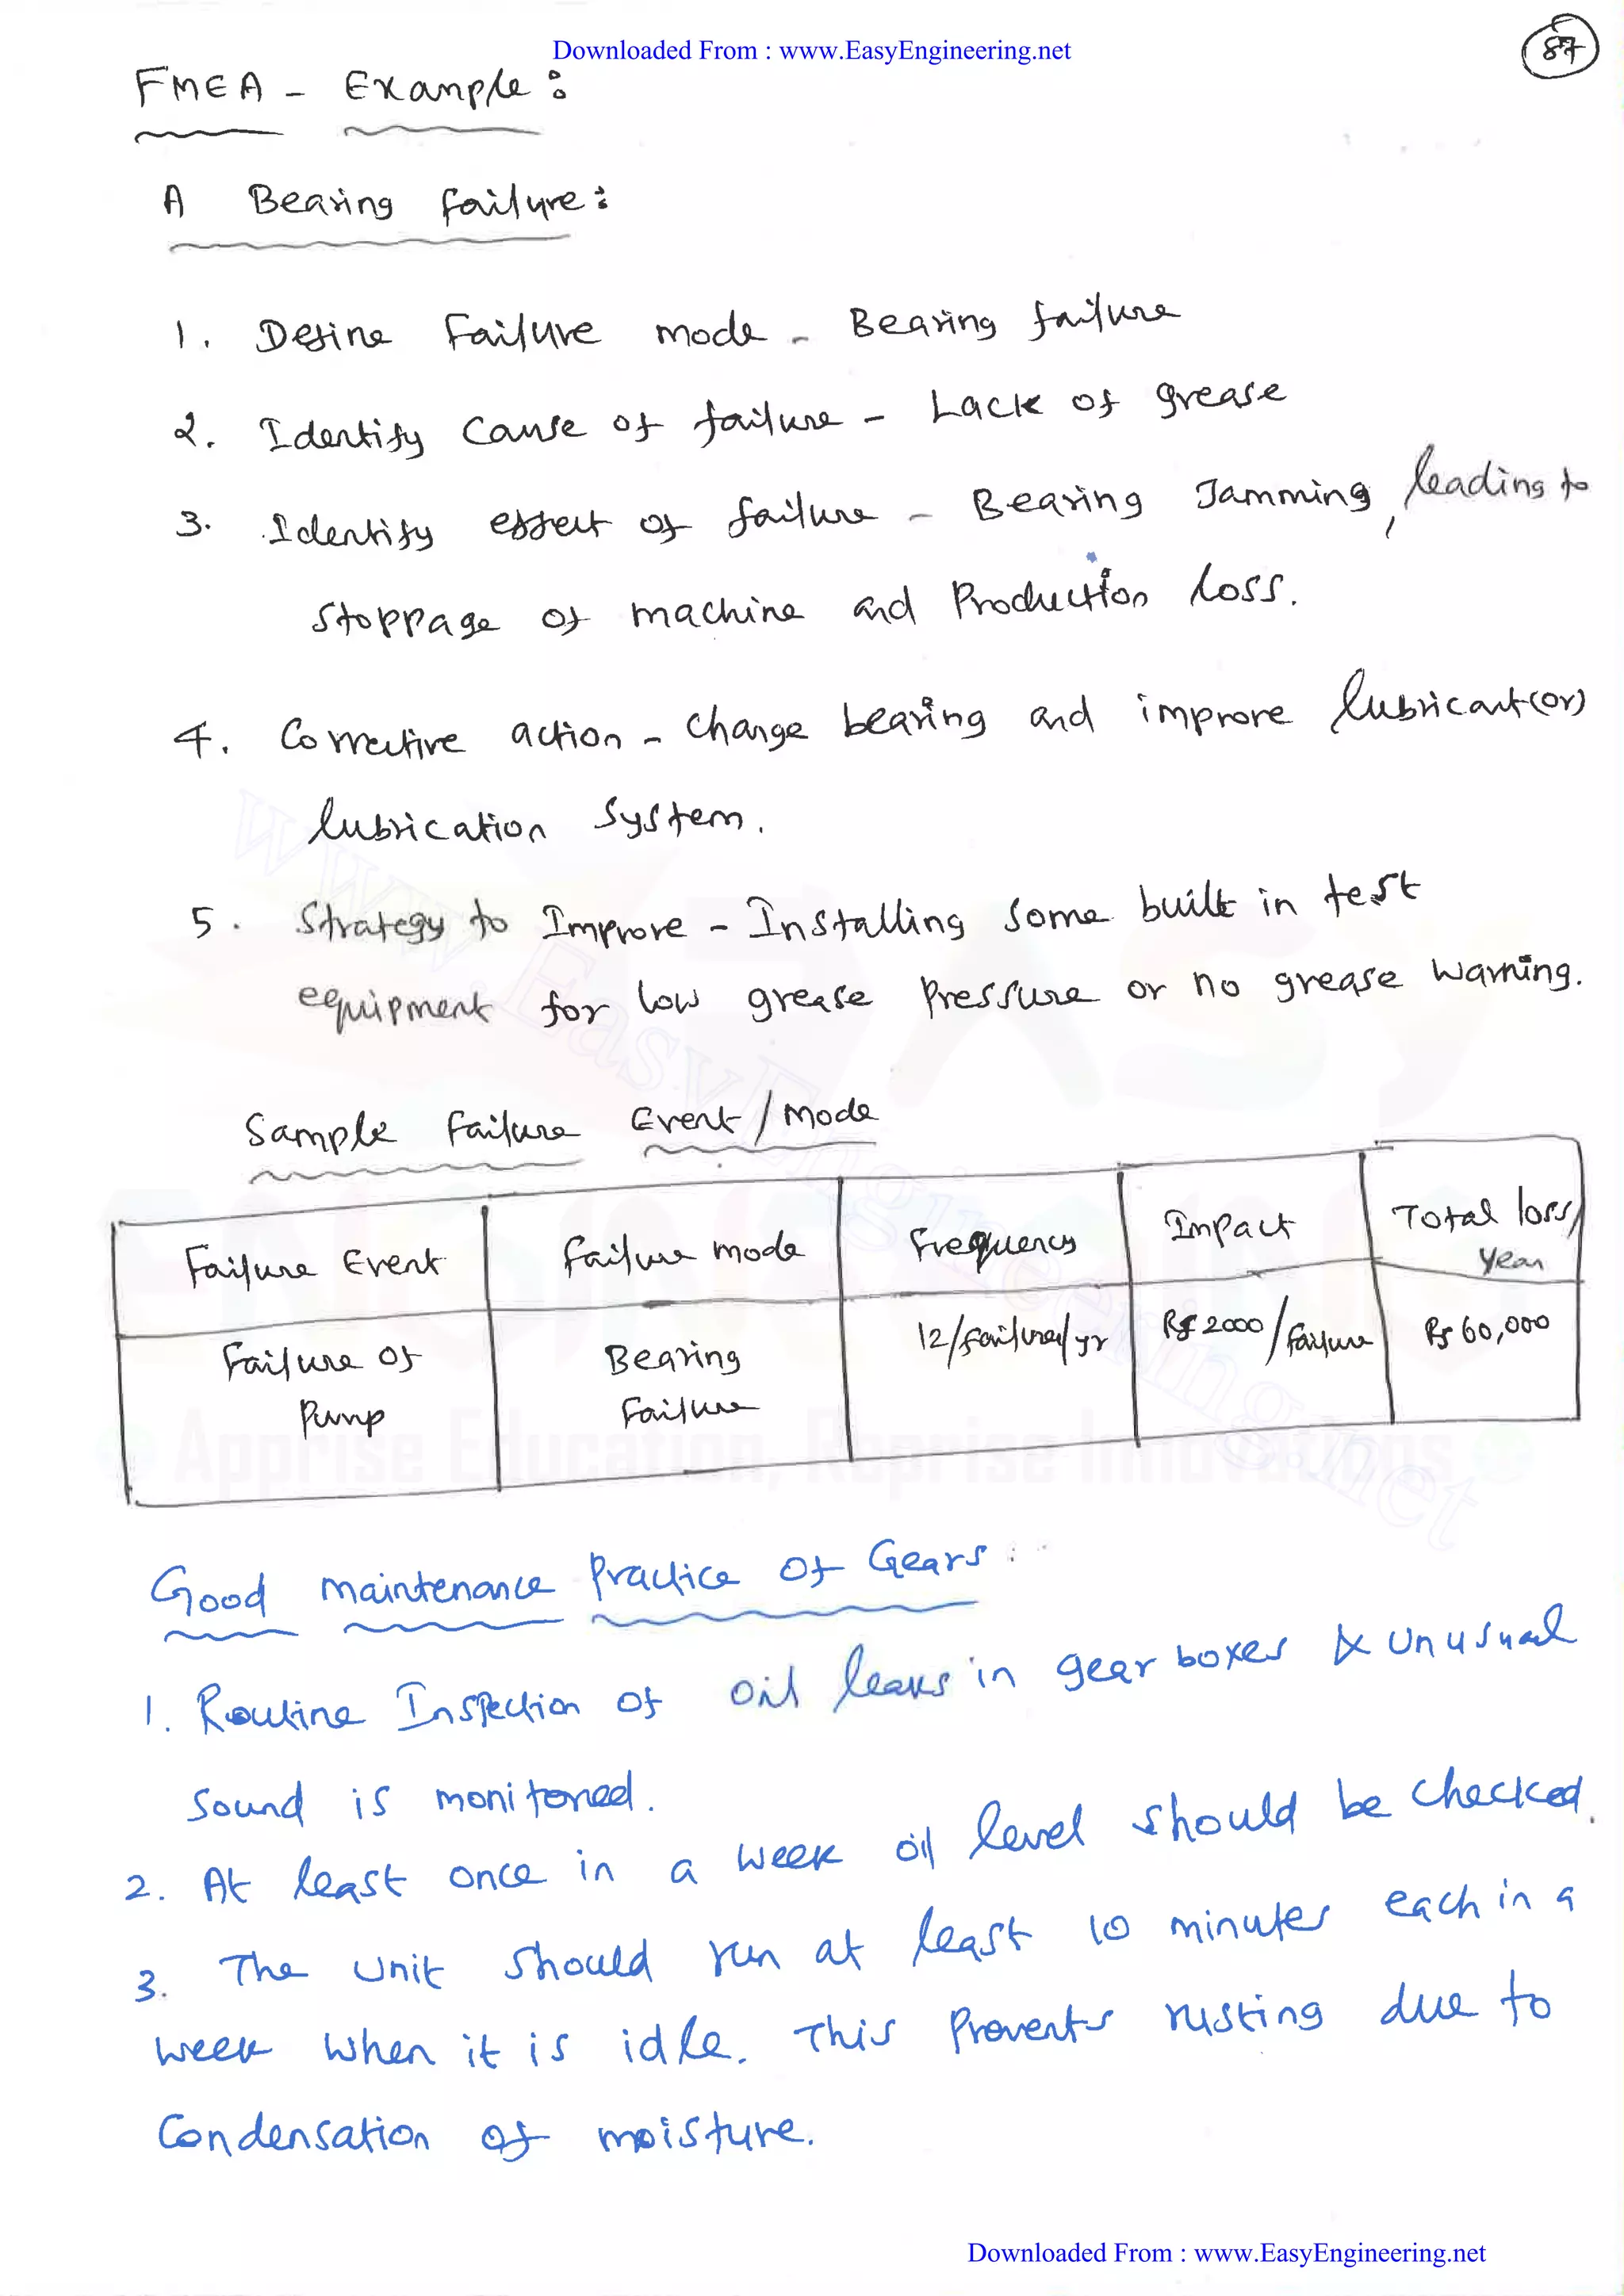 Downloaded From : www.EasyEngineering.net
87
FMEA - Example :
A Bearing failure :
1. Define Failure mode - Bearing failure
2. Identify Cause of failure - Lack of grease
3. Identify effect of failure - Bearing Jamming, leading to
stoppage of machine and Production loss.
4. Corrective action - change bearing and improve lubricant (or)
lubrication System.
5. Strategy to Improve - Installing Some built in test
equipment for low grease Pressure or no grease warning.
Sample Failure Event / Mode
Failure Event Failure mode Frequency Impact Total loss/
Year
Failure of Bearing 12/failures/yr Rs 2000/failure Rs 60,000
Pump Failure
Good maintenance Practice of Gears :
1. Routine Inspection of oil leaks in gear boxes & unusual
Sound is monitored.
2. At least once in a week oil level should be checked.
3. The unit should run at least 10 minutes each in a
week when it is idle. This Prevents rusting due to
Condensation of moisture.
www.EasyEngineering.net
EASY
ENGINEERING
Apprise Education, Reprise Innovations
Downloaded From : www.EasyEngineering.net